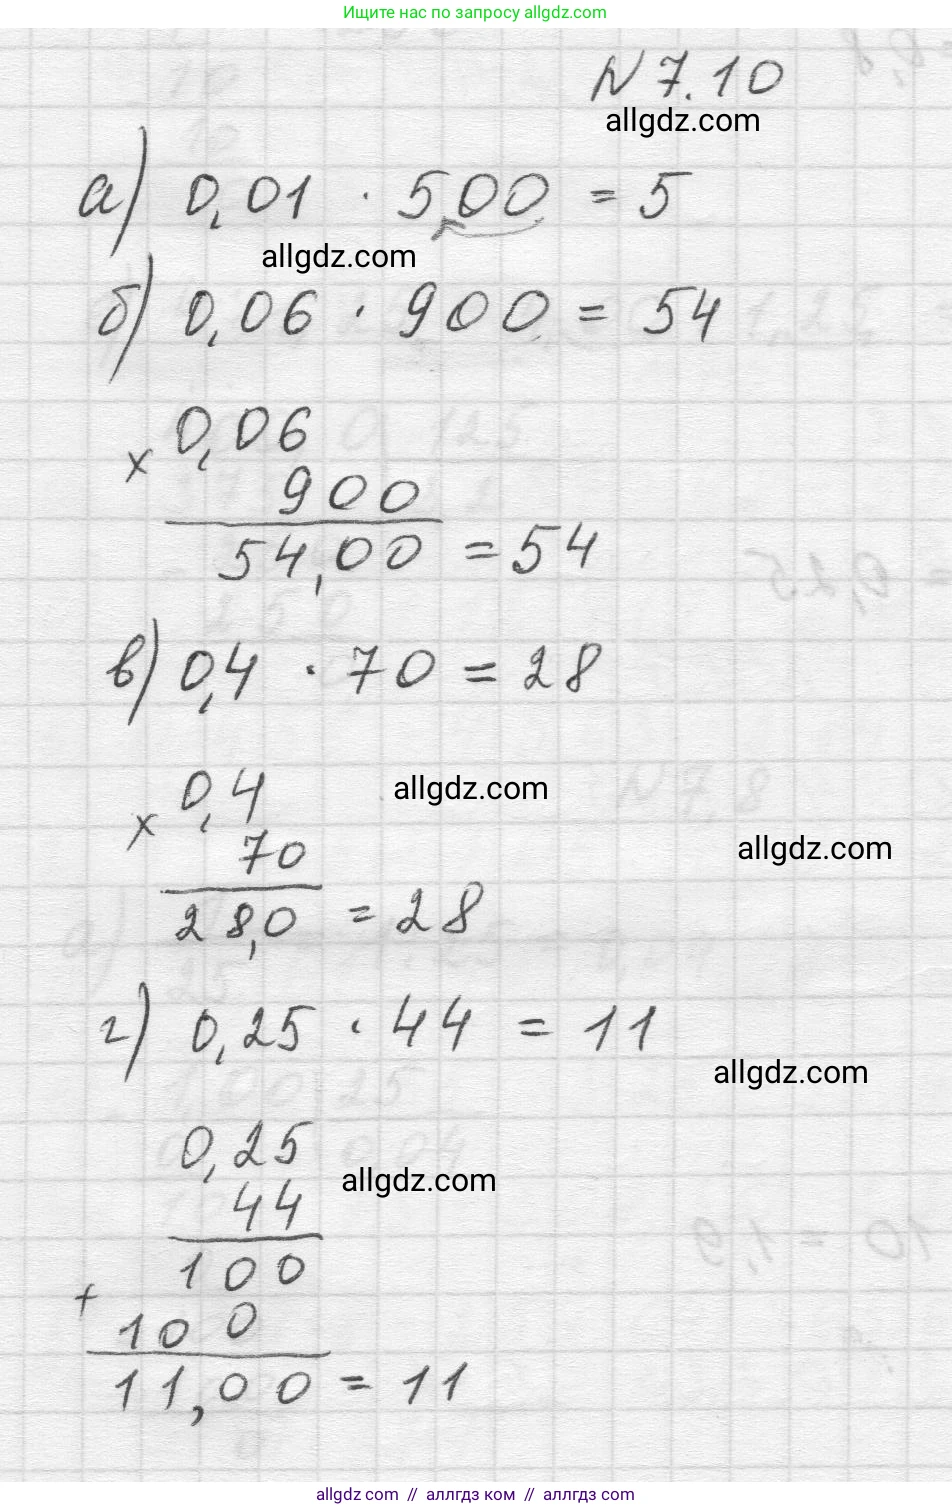 Ищите нас по запросу allgdz.com
N 7.10
allgdz.com
а) 0,01 · 5,00 = 5
allgdz.com
б) 0,06 · 900 = 54
0,06
×
900
54,00 = 54
в) 0,4 · 70 = 28
allgdz.com
0,4
×
70
allgdz.com
28,0 = 28
г) 0,25 · 44 = 11
allgdz.com
0,25
allgdz.com
44
100
+
100
11,00 = 11
allgdz.com // аллгдз ком // аллгдз.com